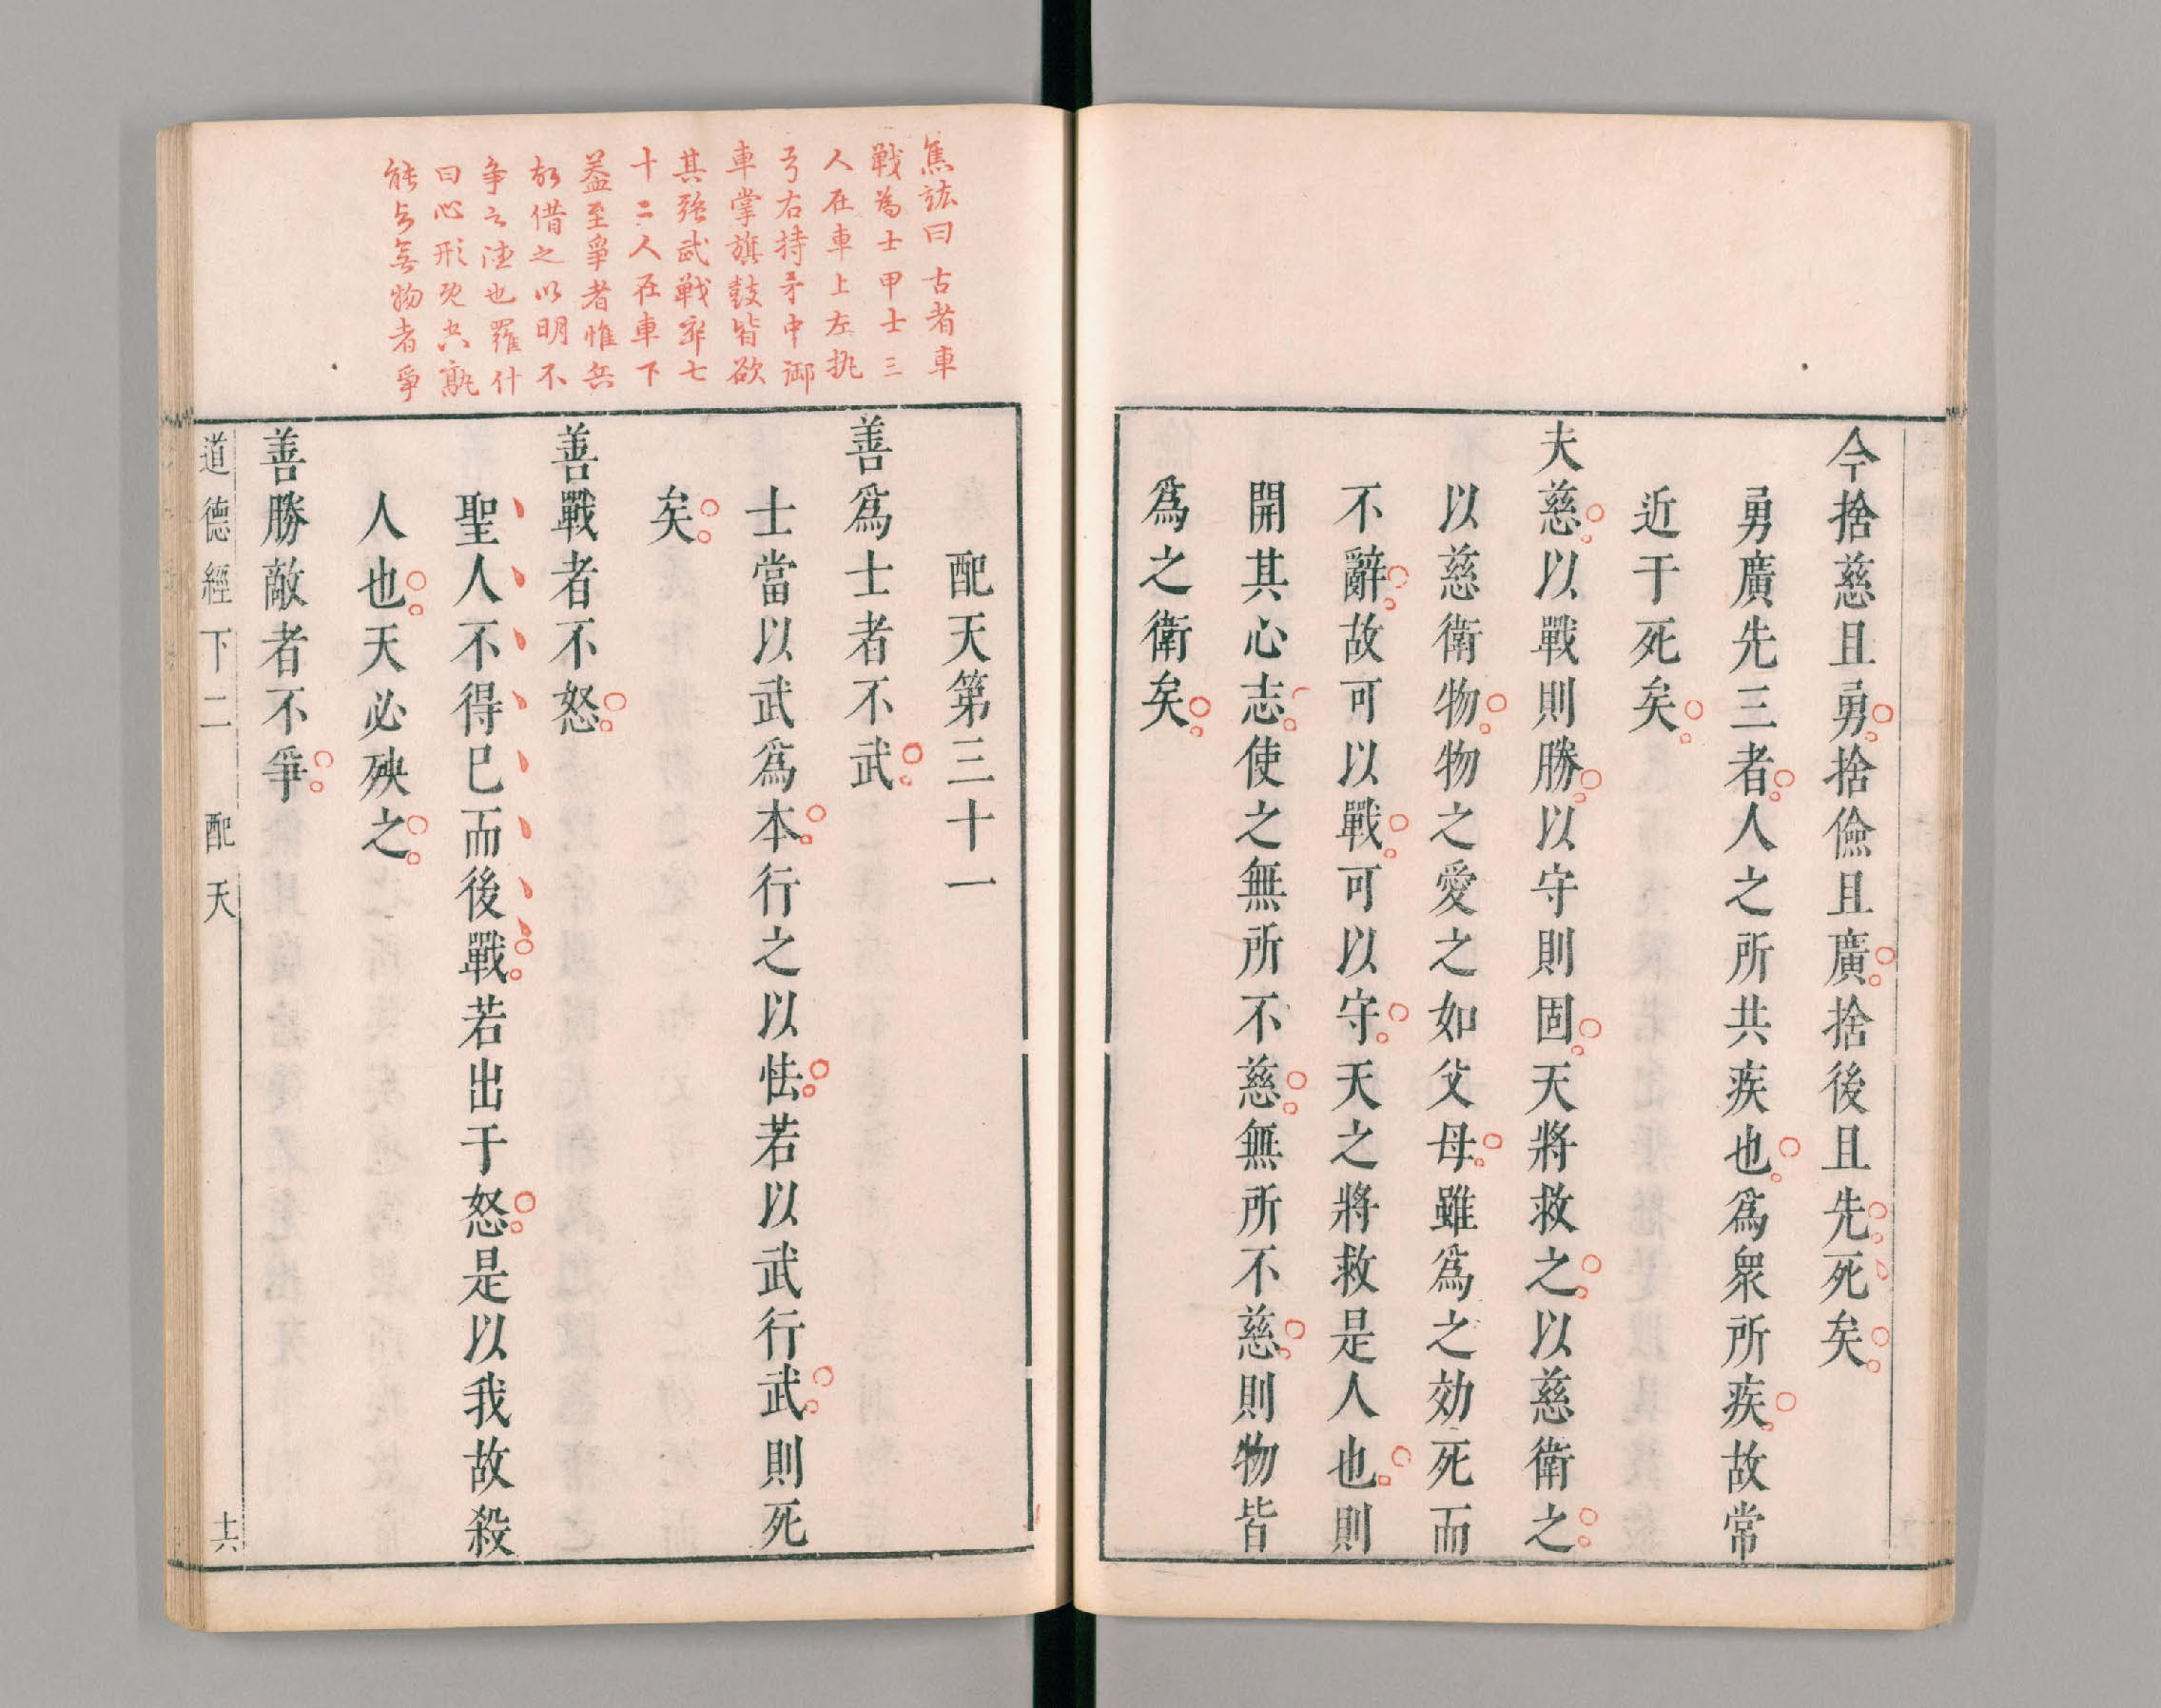 今捨慈且勇捨儉且廣捨後且先死矣
勇廣先三者人之所共疾也爲衆所疾故常
近于死矣
夫慈以戰則勝以守則固天將救之以慈衛之
以慈衛物物之愛之如父母雖爲之効死而
不辭故可以戰可以守天之將救是人也則
開其心志使之無所不慈無所不慈則物皆
爲之衛矣
焦竑曰古者車
戰為士甲士三
人在車上左執
弓右持矛中御
車掌旗鼓皆欲
其强武戰卒七
十二人在車下
葢至爭者惟兵
故借之以明不
争之德也羅什
曰心形既空孰
能与無物者爭
配天第三十一
善爲士者不武
士當以武爲本行之以怯若以武行武則死
矣
善戰者不怒
聖人不得巳而後戰若出于怒是以我故殺
人也天必殃之
善勝敵者不爭
道德經下二 配天 十六